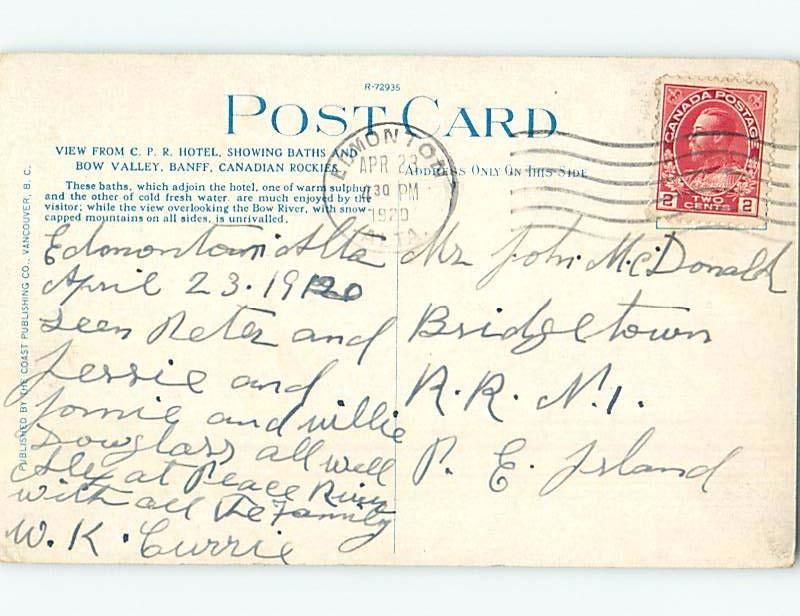 R-72935
POST CARD
VIEW FROM C. P. R. HOTEL, SHOWING BATHS AND
BOW VALLEY, BANFF, CANADIAN ROCKIES
These baths, which adjoin the hotel, one of warm sulphur
and the other of cold fresh water, are much enjoyed by the
visitor; while the view overlooking the Bow River, with snow-
capped mountains on all sides, is unrivalled.
ADDRESS ONLY ON THIS SIDE
PUBLISHED BY THE COAST PUBLISHING CO., VANCOUVER, B. C.
EDMONTON
APR 23
730 PM
1920
ALTA.
CANADA POSTAGE
2 TWO CENTS 2
Edmonton Alta
April 23. 1920
Seen Peter and
Jessie and
and Willie
Douglass all well
Aley at Peace River
with all The Family
W. K. Currie
Mr John McDonald
Bridgetown
R. R. N. 1.
P. E. Island